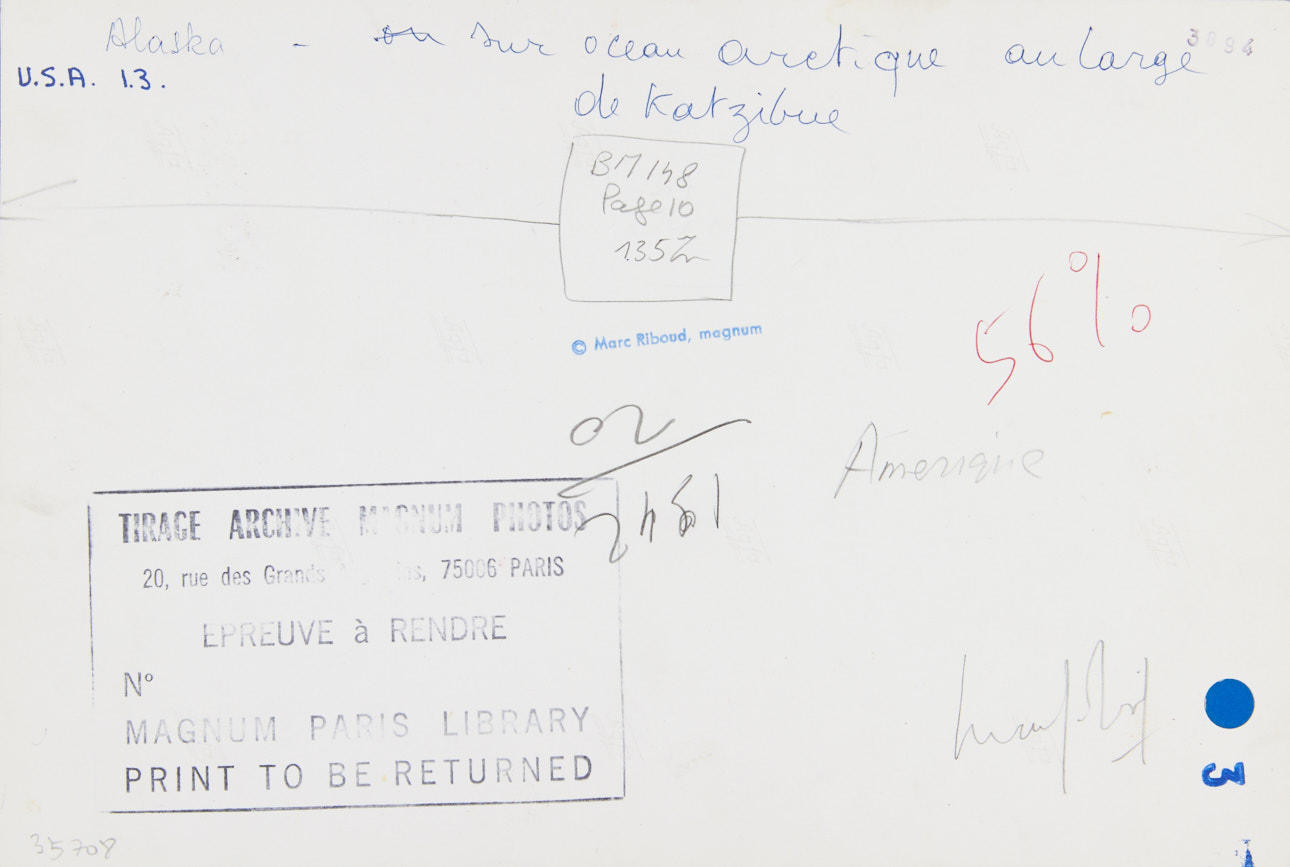 Alaska - sur ocean arctique au large
3894
U.S.A. 1.3.
de Katzibue
BM 148
Page 10
135 Z
56%
© Marc Riboud, magnum
02
2461
Amerique
TIRAGE ARCHIVE MAGNUM PHOTOS
20, rue des Grands 75006 PARIS
EPREUVE à RENDRE
N°
MAGNUM PARIS LIBRARY
PRINT TO BE RETURNED
3
35708